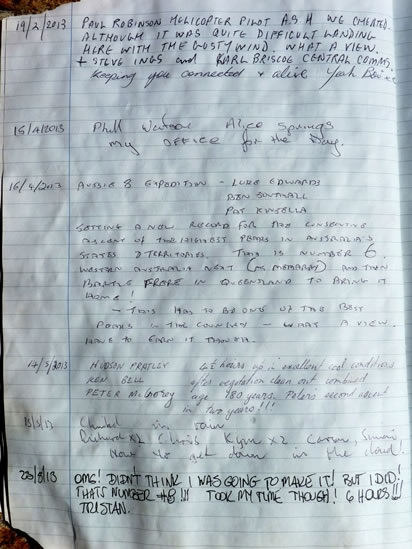 19/2/2013 PAUL ROBINSON HELICOPTER PILOT WE CHEATED.
ALTHOUGH IT WAS QUITE DIFFICULT LANDING
HERE WITH THE GUSTY WIND. WHAT A VIEW.
+ STEVE INGS and KARL BRISCOE CENTRAL COMMS
Keeping you connected + alive Yeah
15/4/2013 Phill Watson Alice Springs
my OFFICE for the Day.
16/4/2013 AUSSIE 8 EXPEDITION - LUKE EDWARDS
BEN SOUTHALL
PAT KINSELLA
SETTING A NEW RECORD FOR THE CONSECUTIVE
ASCENT OF THE HIGHEST PEAKS IN AUSTRALIA'S
STATES & TERRITORIES. THIS IS NUMBER 6.
WESTERN AUSTRALIA NEXT AND THEN
BARTLE FRERE IN QUEENSLAND TO BRING IT
HOME!
- THIS HAS TO BE ONE OF THE BEST
PEAKS IN THE COUNTRY - WHAT A VIEW.
HAVE TO EARN IT THOUGH.
HUDSON 4½ hours up in excellent cool conditions
KEN BELL after vegetation clean out combined
PETER age 180 years. Peters second ascent
in two years!!!
in rain!
Richard x2 Chris Kym x2 Simon
Now to get down in the cloud!
23/8/13 OMG! DIDN'T THINK I WAS GOING TO MAKE IT! BUT I DID!
THATS NUMBER #8!!! TOOK MY TIME THOUGH! 6 HOURS!!!
TRISTAN.